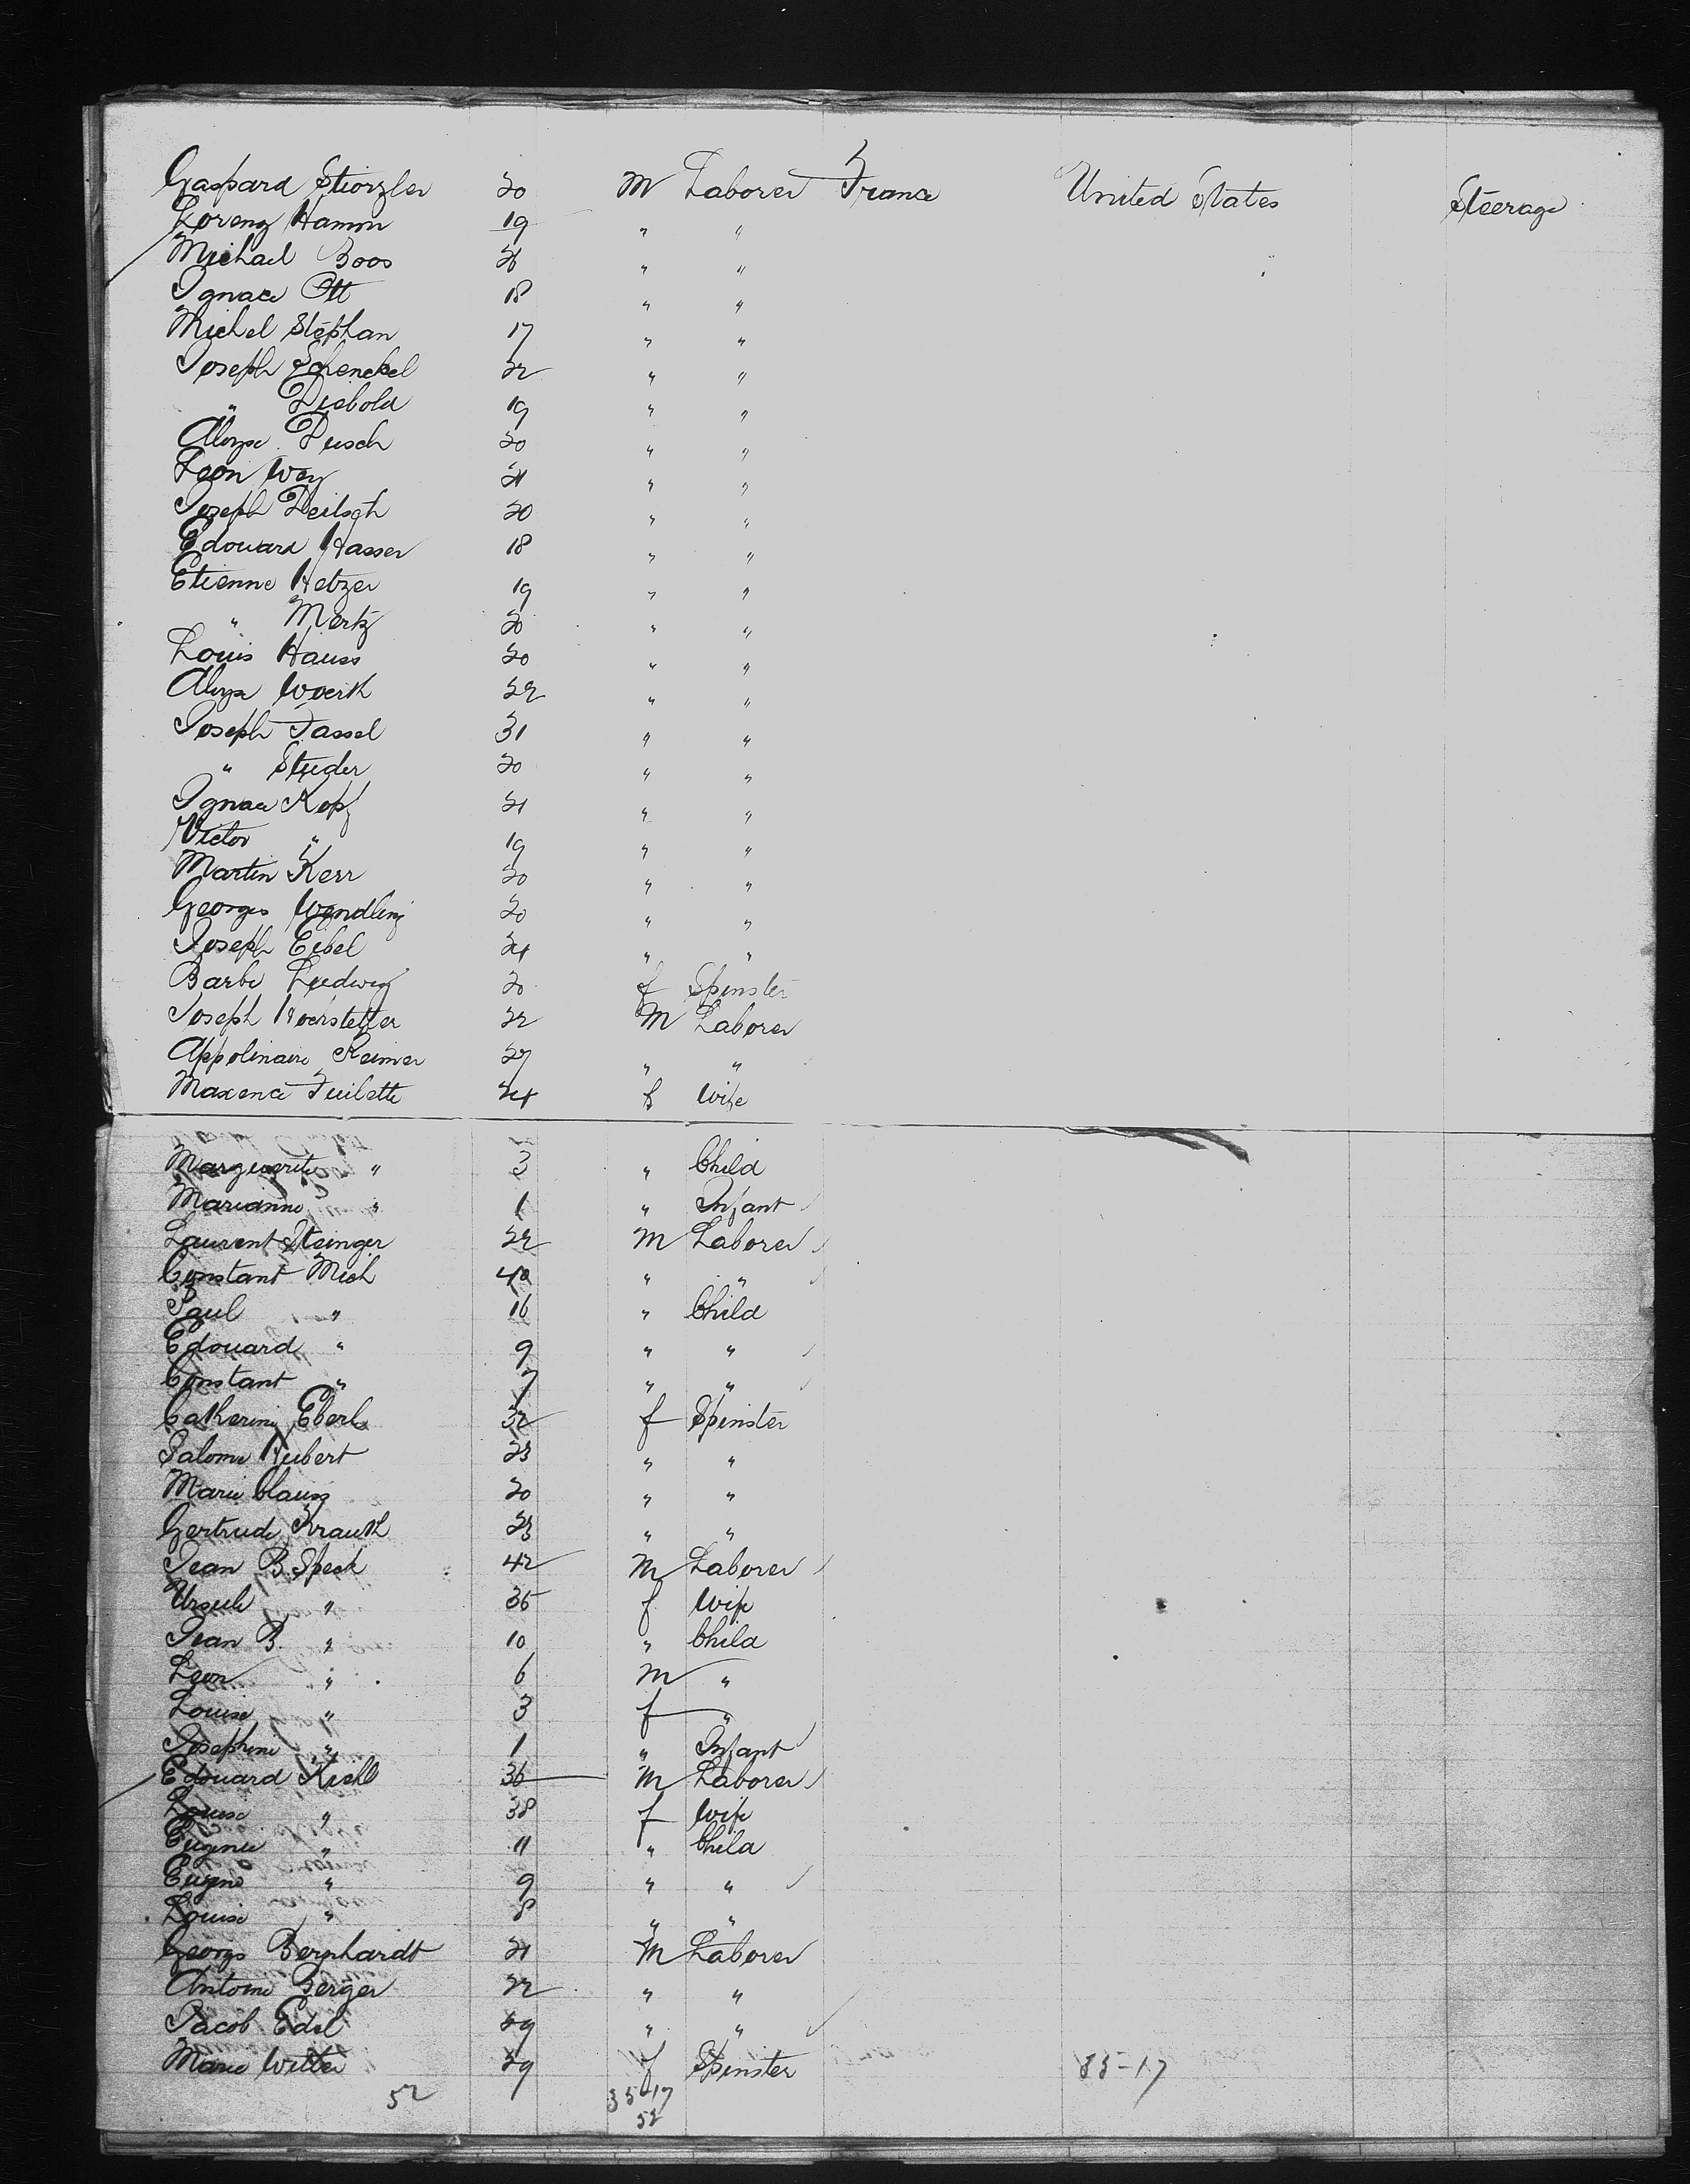 Gaspard Stiorzler 20 M Laborer France United States Steerage
Lorenz Hamm 19 " "
Michael Boos 26 " "
Ignace Ott 18 " "
Michel Stephan 17 " "
Joseph Schenckel 22 " "
" Diebold 19 " "
Aloyse Pusch 20 " "
Leon Wey 21 " "
Joseph Deitsch 20 " "
Edouard Hasser 18 " "
Etienne Hetzer 19 " "
" Mertz 20 " "
Louis Hauss 20 " "
Aloyse Woerth 22 " "
Joseph Fassel 31 " "
" Studer 20 " "
Ignace Kopf 21 " "
Victor " 19 " "
Martin Kerr 20 " "
Georges Wendling 20 " "
Joseph Eibel 24 " "
Barbe Ludwig 20 f Spinster
Joseph Hoerstetter 22 M Laborer
Appolinaire Reimer 27 " "
Maxence Fuilette 24 f Wife
Marguerite " 3 " Child
Marianne " 1 " Infant
Laurent Steinger 22 M Laborer
Constant Mich 40 " "
Paul " 16 " Child
Edouard " 9 " "
Constant " 7 " "
Catherine Eberle 32 f Spinster
Salome Hubert 23 " "
Marie Clauss 20 " "
Gertrude Krauth 23 " "
Jean B. Speck 42 M Laborer
Ursule " 35 f Wife
Jean B. " 10 " Child
Leon " 6 M "
Louise " 3 f "
Josephine " 1 " Infant
Edouard Kiehl 36 M Laborer
Louise " 38 f Wife
Eugenie " 11 " Child
Eugene " 9 " "
Louise " 8 " "
Georges Bernhardt 21 M Laborer
Antoine Berger 22 " "
Jacob Edel 49 " "
Marie Witter 29 f Spinster 35-17
52 35-17
52